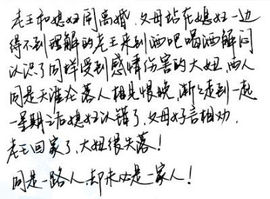 老王和媳妇闹离婚，父母站在媳妇一边
得不到理解的老王来到酒吧喝酒解闷
认识了同样受到感情伤害的大妞，两人
同是天涯沦落人相见恨晚，渐之走到一起
一星期之后媳妇认错了，父母好言相劝，
老王回家了，大妞很失落！
同是一路人，却未必是一家人！